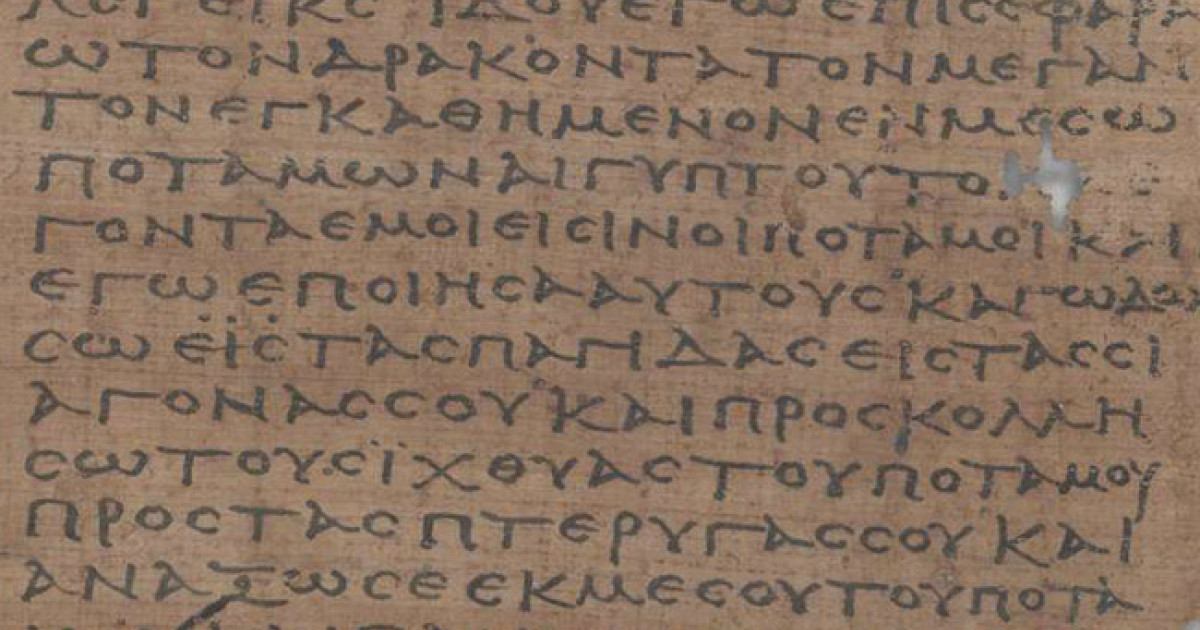 ΙΔΟΥ ΕΓΩ ΕΠΙ ΣΕ ΦΑΡΑ
Ω ΤΟΝ ΔΡΑΚΟΝΤΑ ΤΟΝ ΜΕΓΑΝ
ΤΟΝ ΕΓΚΑΘΗΜΕΝΟΝ ΕΝ ΜΕϹΩ
ΠΟΤΑΜΩΝ ΑΙΓΥΠΤΟΥ ΤΟ
ΓΟΝΤΑ ΕΜΟΙ ΕΙϹΙΝ ΟΙ ΠΟΤΑΜΟΙ ΚΑΙ
ΕΓΩ ΕΠΟΙΗϹΑ ΑΥΤΟΥϹ ΚΑΓΩ ΔΩ
ϹΩ ΕΙϹ ΤΑϹ ΠΑΓΙΔΑϹ ΕΙϹ ΤΑϹ ϹΙ
ΑΓΟΝΑϹ ϹΟΥ ΚΑΙ ΠΡΟϹΚΟΛΛΗ
ϹΩ ΤΟΥϹ ΪΧΘΥΑϹ ΤΟΥ ΠΟΤΑΜΟΥ
ΠΡΟϹ ΤΑϹ ΠΤΕΡΥΓΑϹ ϹΟΥ ΚΑΙ
ΑΝΑΞΩ ϹΕ ΕΚ ΜΕϹΟΥ ΤΟΥ ΠΟΤΑ